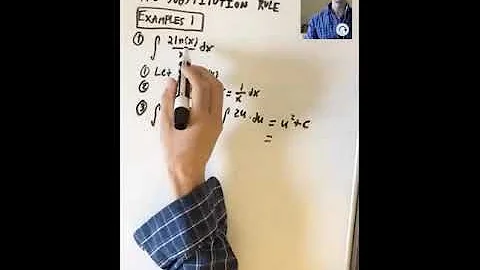 SUBSTITUTION RULE
EXAMPLES 1
① ∫ 2ln(x) dx
① Let
② = 1/x dx
③ ∫ ∫ 2u · du = u² + c
=